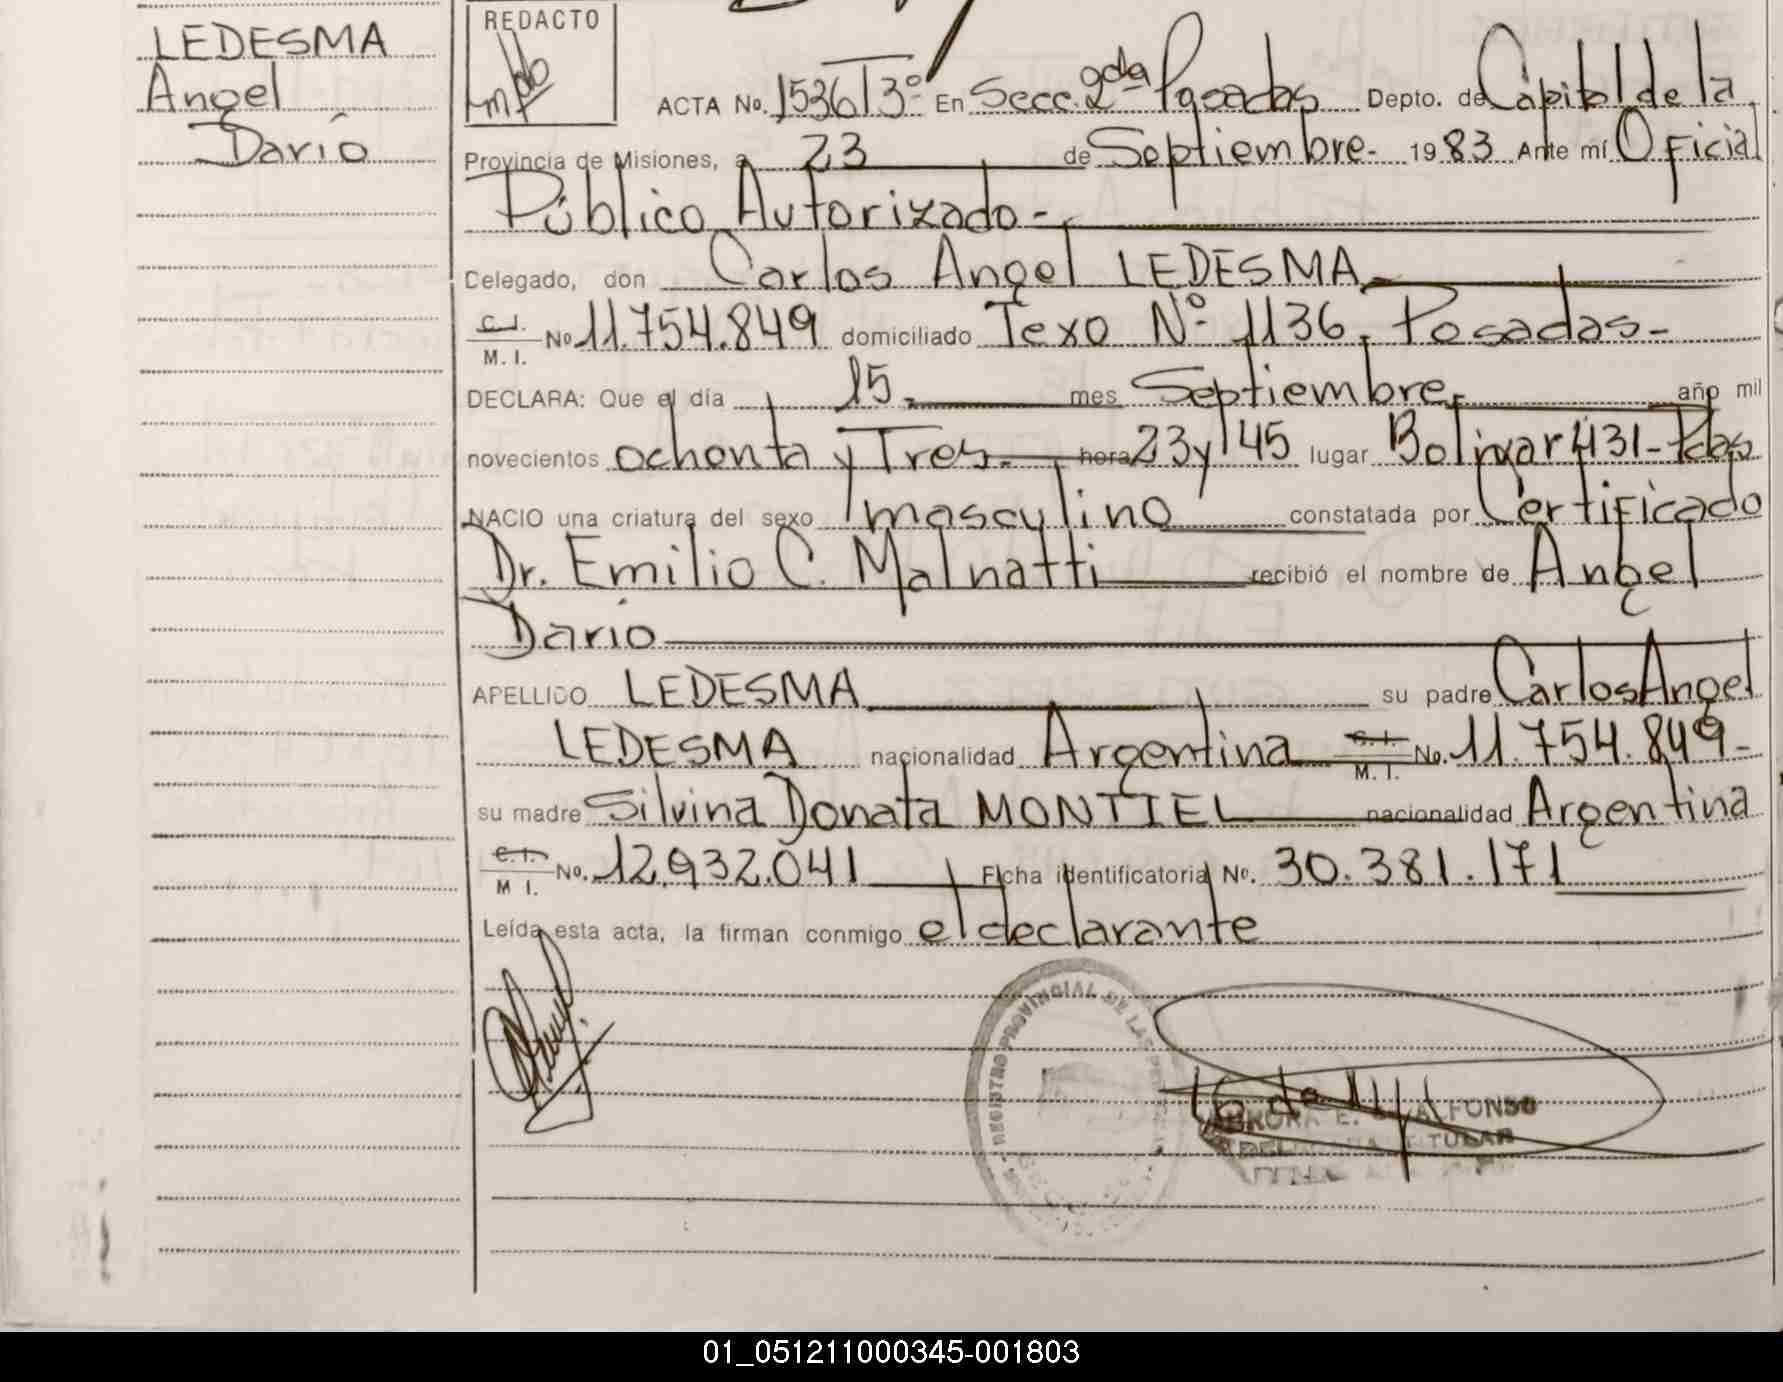 LEDESMA
Angel
Darío
REDACTO
ACTA No. 1536 T 3º En Secc. 2da Posadas Depto. de Capital de la
Provincia de Misiones, a 23 de Septiembre- 1983 Ante mí Oficial
Público Autorizado-
Delegado, don Carlos Angel LEDESMA
C.I. M. I. No 11.754.849 domiciliado Texo Nº 1136, Posadas-
DECLARA: Que el día 15 mes Septiembre año mil
novecientos ochenta y Tres.- hora 23 y 45 lugar Bolivar 431- Pdas
NACIO una criatura del sexo masculino constatada por Certificado
Dr. Emilio C. Malnatti recibió el nombre de Angel
Darío
APELLIDO LEDESMA su padre Carlos Angel
LEDESMA nacionalidad Argentina C.I. M. I. No. 11.754.849-
su madre Silvina Donata MONTIEL nacionalidad Argentina
C.I. M I. No. 12.932.041 Ficha identificatoria No. 30.381.171
Leída esta acta, la firman conmigo el declarante
REGISTRO PROVINCIAL DE LAS
E. ALFONSO
TITULAR
01_051211000345-001803